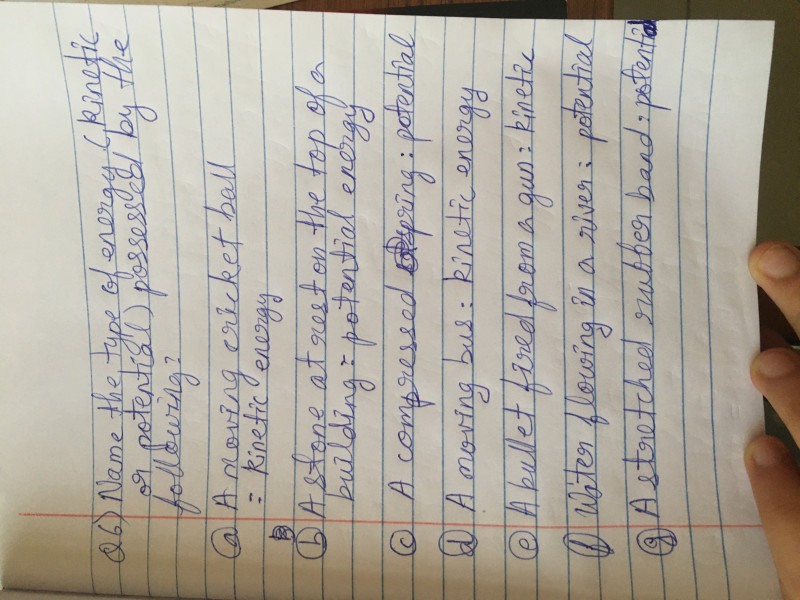 Q6) Name the type of energy (kinetic
or potential) possessed by the
following:
(a) A moving cricket ball
= kinetic energy
(b) A stone at rest on the top of a
building = potential energy
(c) A compressed spring : potential
(d) A moving bus : kinetic energy
(e) A bullet fired from a gun : kinetic
(f) Water flowing in a river : potential
(g) A stretched rubber band : potential